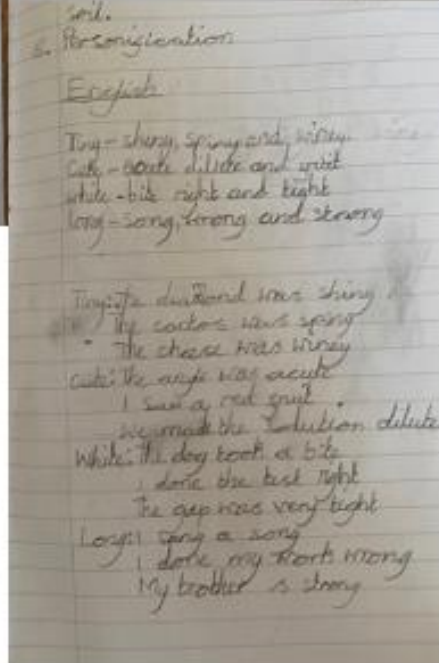 soil.
5. Personigication
English
Tiny - shiny, spiny and winey
Cute - acute dilute and
white - bite right and tight
long - song, wrong and strong
Tiny: The diamond was shiny
The cactos was spiny
The cheese was winey
cute: The angle was acute
I saw a red
We made the solution dilute
White: The dog took a bite
I done the test right
The gap was very tight
Long: I sang a song
I done my work wrong
My brother is strong